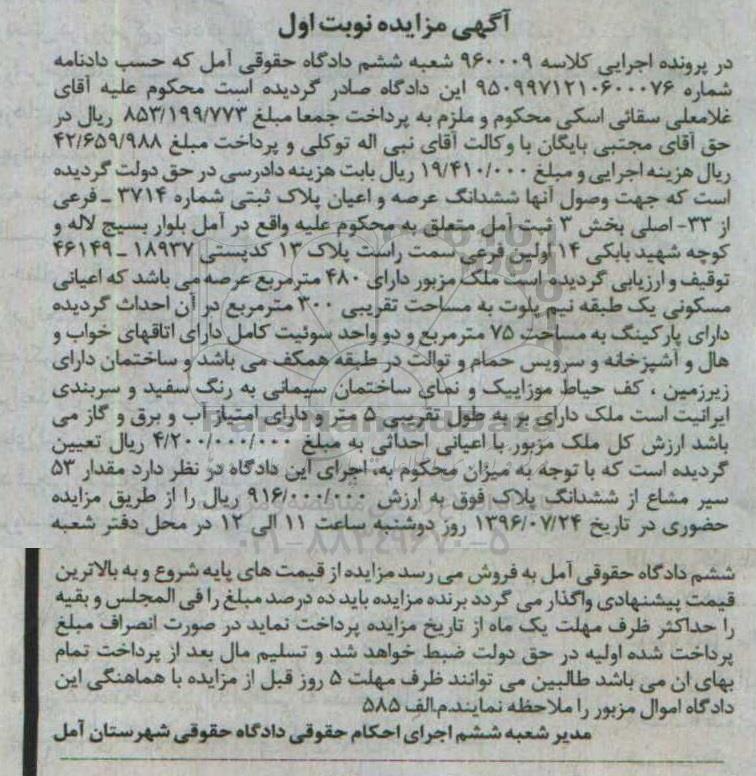 آگهی مزایده نوبت اول
در پرونده اجرایی کلاسه ۹۶۰۰۰۹ شعبه ششم دادگاه حقوقی آمل که حسب دادنامه
شماره ۹۵۰۹۹۷۱۲۱۰۶۰۰۰۷۶ این دادگاه صادر گردیده است محکوم علیه آقای
غلامعلی سقائی اسکی محکوم و ملزم به پرداخت جمعا مبلغ ۸۵۳/۱۹۹/۷۷۳ ریال در
حق آقای مجتبی بایگان با وکالت آقای نبی اله توکلی و پرداخت مبلغ ۴۲/۶۵۹/۹۸۸
ریال هزینه اجرایی و مبلغ ۱۹/۴۱۰/۰۰۰ ریال بابت هزینه دادرسی در حق دولت گردیده
است که جهت وصول آنها ششدانگ عرصه و اعیان پلاک ثبتی شماره ۳۷۱۴ ـ فرعی
از ۳۳- اصلی بخش ۳ ثبت آمل متعلق به محکوم علیه واقع در آمل بلوار بسیج لاله و
کوچه شهید بابکی ۱۴ اولین فرعی سمت راست پلاک ۱۳ کدپستی ۱۸۹۳۷ ـ ۴۶۱۴۹
توقیف و ارزیابی گردیده است ملک مزبور دارای ۴۸۰ مترمربع عرصه می باشد که اعیانی
مسکونی یک طبقه نیم پلوت به مساحت تقریبی ۳۰۰ مترمربع در آن احداث گردیده
دارای پارکینگ به مساحت ۷۵ مترمربع و دو واحد سوئیت کامل دارای اتاقهای خواب و
هال و آشپزخانه و سرویس حمام و توالت در طبقه همکف می باشد و ساختمان دارای
زیرزمین ، کف حیاط موزاییک و نمای ساختمان سیمانی به رنگ سفید و سربندی
ایرانیت است ملک دارای بر به طول تقریبی ۵ متر و دارای امتیاز آب و برق و گاز می
باشد ارزش کل ملک مزبور با اعیانی احداثی به مبلغ ۴/۲۰۰/۰۰۰/۰۰۰ ریال تعیین
گردیده است که با توجه به میزان محکوم به، اجرای این دادگاه در نظر دارد مقدار ۵۳
سیر مشاع از ششدانگ پلاک فوق به ارزش ۹۱۶/۰۰۰/۰۰۰ ریال را از طریق مزایده
حضوری در تاریخ ۱۳۹۶/۰۷/۲۴ روز دوشنبه ساعت ۱۱ الی ۱۲ در محل دفتر شعبه
ششم دادگاه حقوقی آمل به فروش می رسد مزایده از قیمت های پایه شروع و به بالاترین
قیمت پیشنهادی واگذار می گردد برنده مزایده باید ده درصد مبلغ را فی المجلس و بقیه
را حداکثر ظرف مهلت یک ماه از تاریخ مزایده پرداخت نماید در صورت انصراف مبلغ
پرداخت شده اولیه در حق دولت ضبط خواهد شد و تسلیم مال بعد از پرداخت تمام
بهای ان می باشد طالبین می توانند ظرف مهلت ۵ روز قبل از مزایده با هماهنگی این
دادگاه اموال مزبور را ملاحظه نمایند.م/الف ۵۸۵
مدیر شعبه ششم اجرای احکام حقوقی دادگاه حقوقی شهرستان آمل